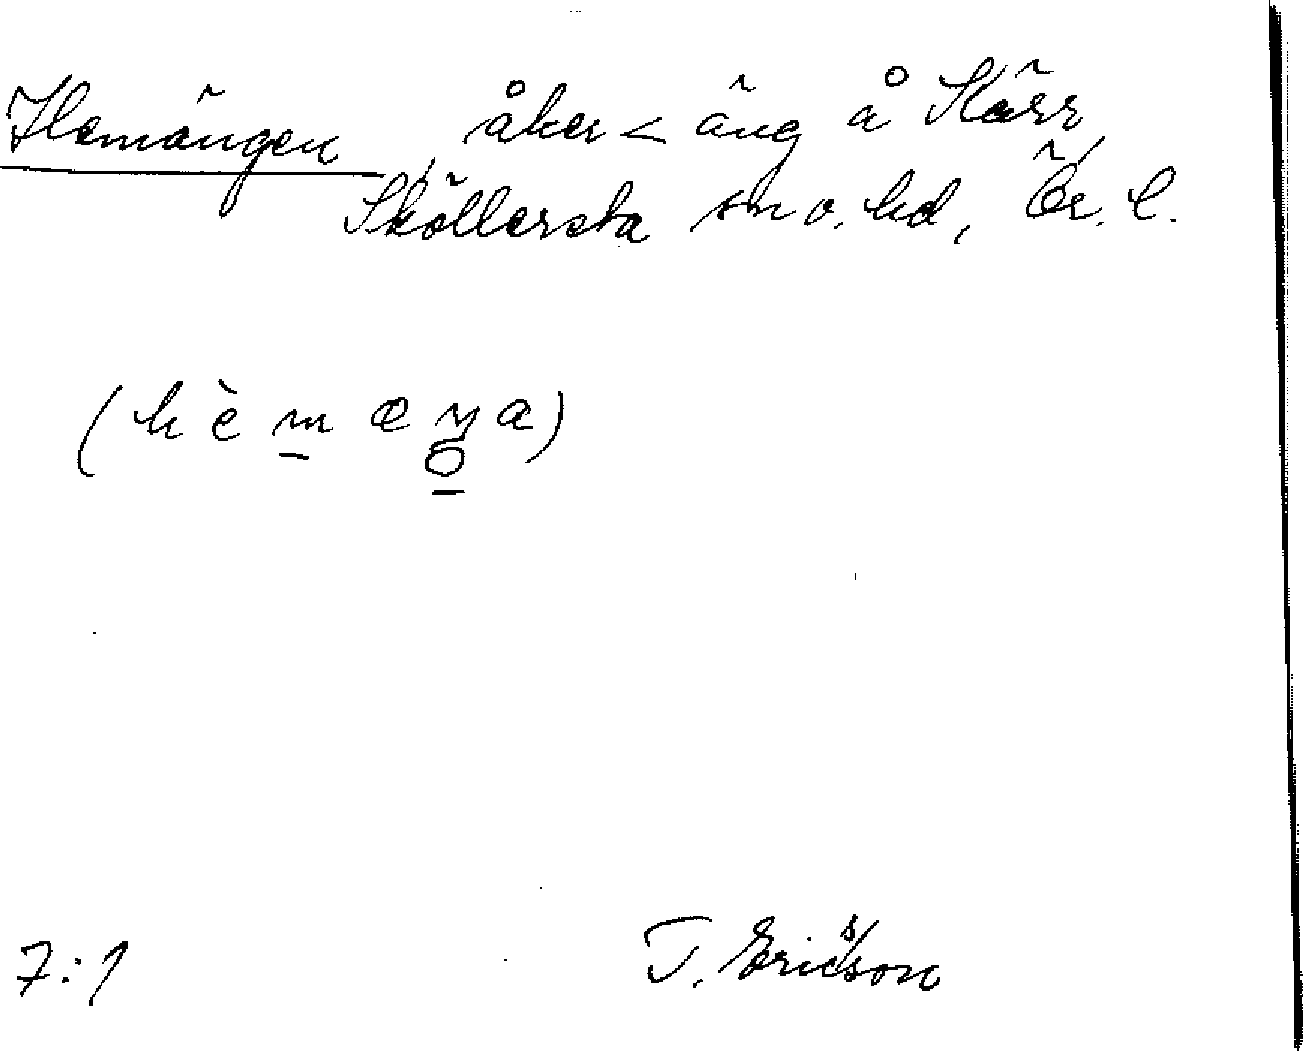 Hemängen, åker < äng å Kärr,
Sköllersta sn o. hd, Ör. l.
(hèmæŋa)
7:1
T. Ericsson